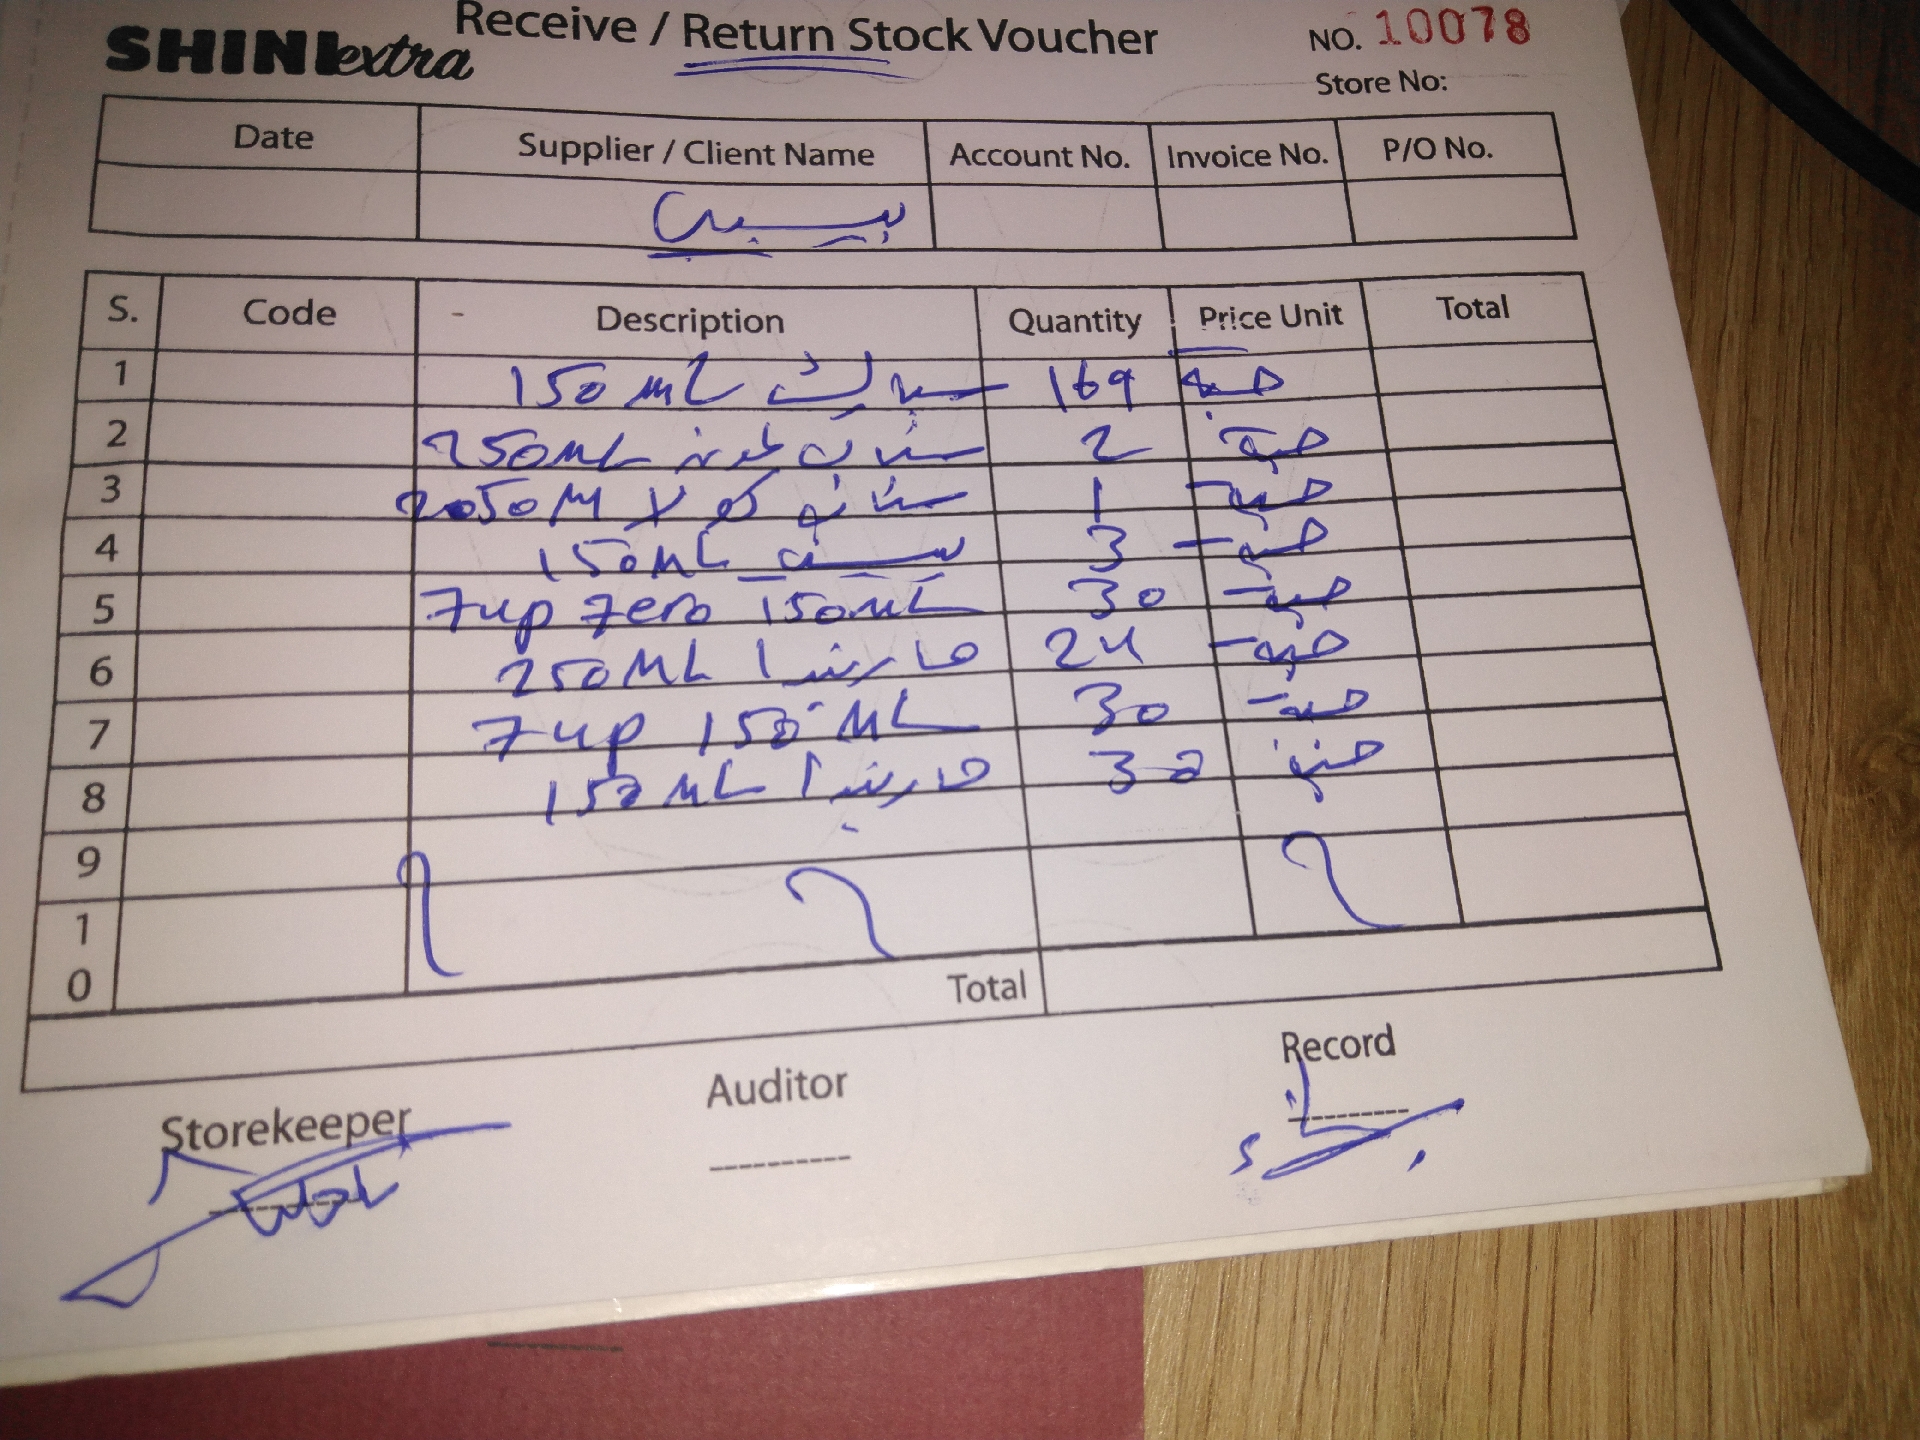 SHINI extra Receive / Return Stock Voucher NO. 10078
Store No:
Date Supplier / Client Name Account No. Invoice No. P/O No.
بيبسي
S. Code Description Quantity Price Unit Total
1 150 ML 169 حبة
2 250ML 2 حبة
3 2050 M 1 حبة
4 150ML 3 حبة
5 7up Zero 150ML 30 حبة
6 ماريندا 250ML 24 حبة
7 7up 150 ML 30 حبة
8 ماريندا 150ML 30 حبة
9
10
Total
Storekeeper Auditor Record